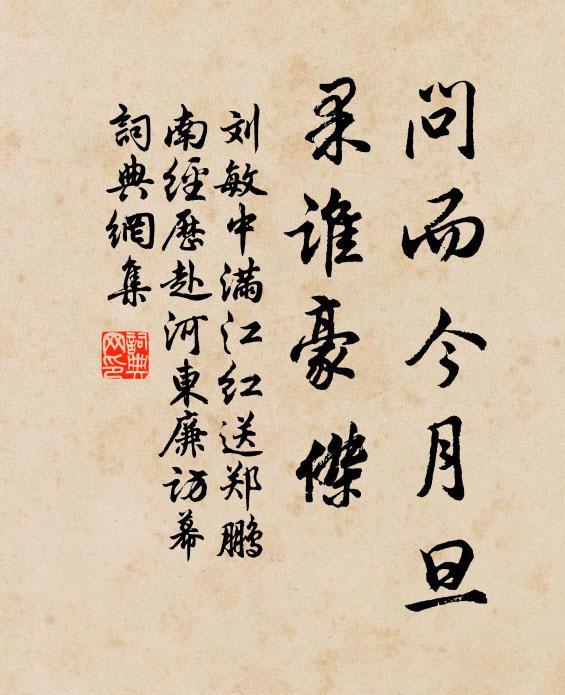 問而今月旦
果谁豪傑
刘敏中满江红送郑鹏
南經歷赴河東廉访幕
詞典網集
詞典网印